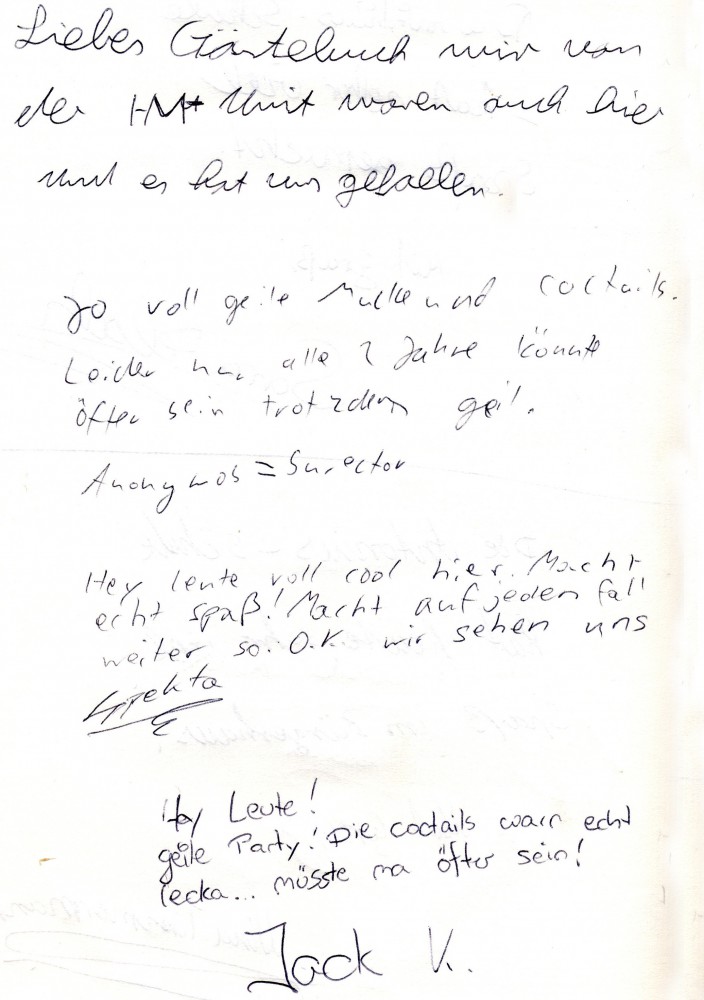 Liebes Gästebuch wir von
der HM+ Unit waren auch hier
und es hat uns gefallen.
Jo voll geile Mucke und coctails.
Leider nur alle 2 Jahre könnte
öfter sein trotzdem geil.
Anonymos =
Hey leute voll cool hier. Macht
echt spaß! Macht auf jeden fall
weiter so. O.K. wir sehen uns
Hey Leute!
geile Party! Die coctails warn echt
lecka... müsste ma öfter sein!
Jack K.